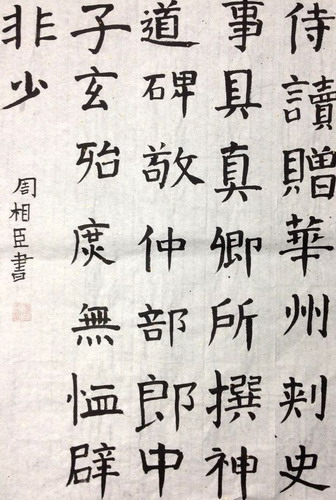 侍讀贈華州刾史
事具真卿所撰神
道碑敬仲部郎中
子玄殆庻無恤辟
非少
周相臣書